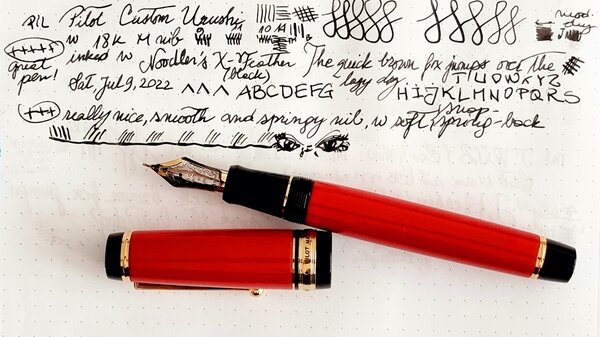 Pilot Custom Urushi
w 18K M nib
inked w Noodler's X-Feather
(black)
The quick brown fox jumps over the
lazy dog
great
pen!
Sat, Jul 9, 2022
ABCDEFG
HIJKLMNOPQRS
TUVWXYZ
really nice, smooth and springy nib, w soft, sprong-back
snap
PILOT